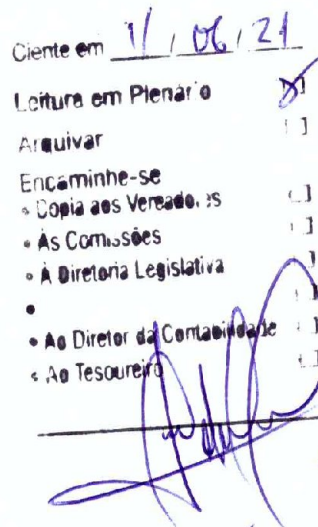 Ciente em 11 / 06 / 21
Leitura em Plenário [X]
Arquivar [ ]
Encaminhe-se
• Copia aos Vereadores [ ]
• Às Comissões [ ]
• À Diretoria Legislativa [ ]
• [ ]
• Ao Diretor da Contabilidade [ ]
• Ao Tesoureiro [ ]